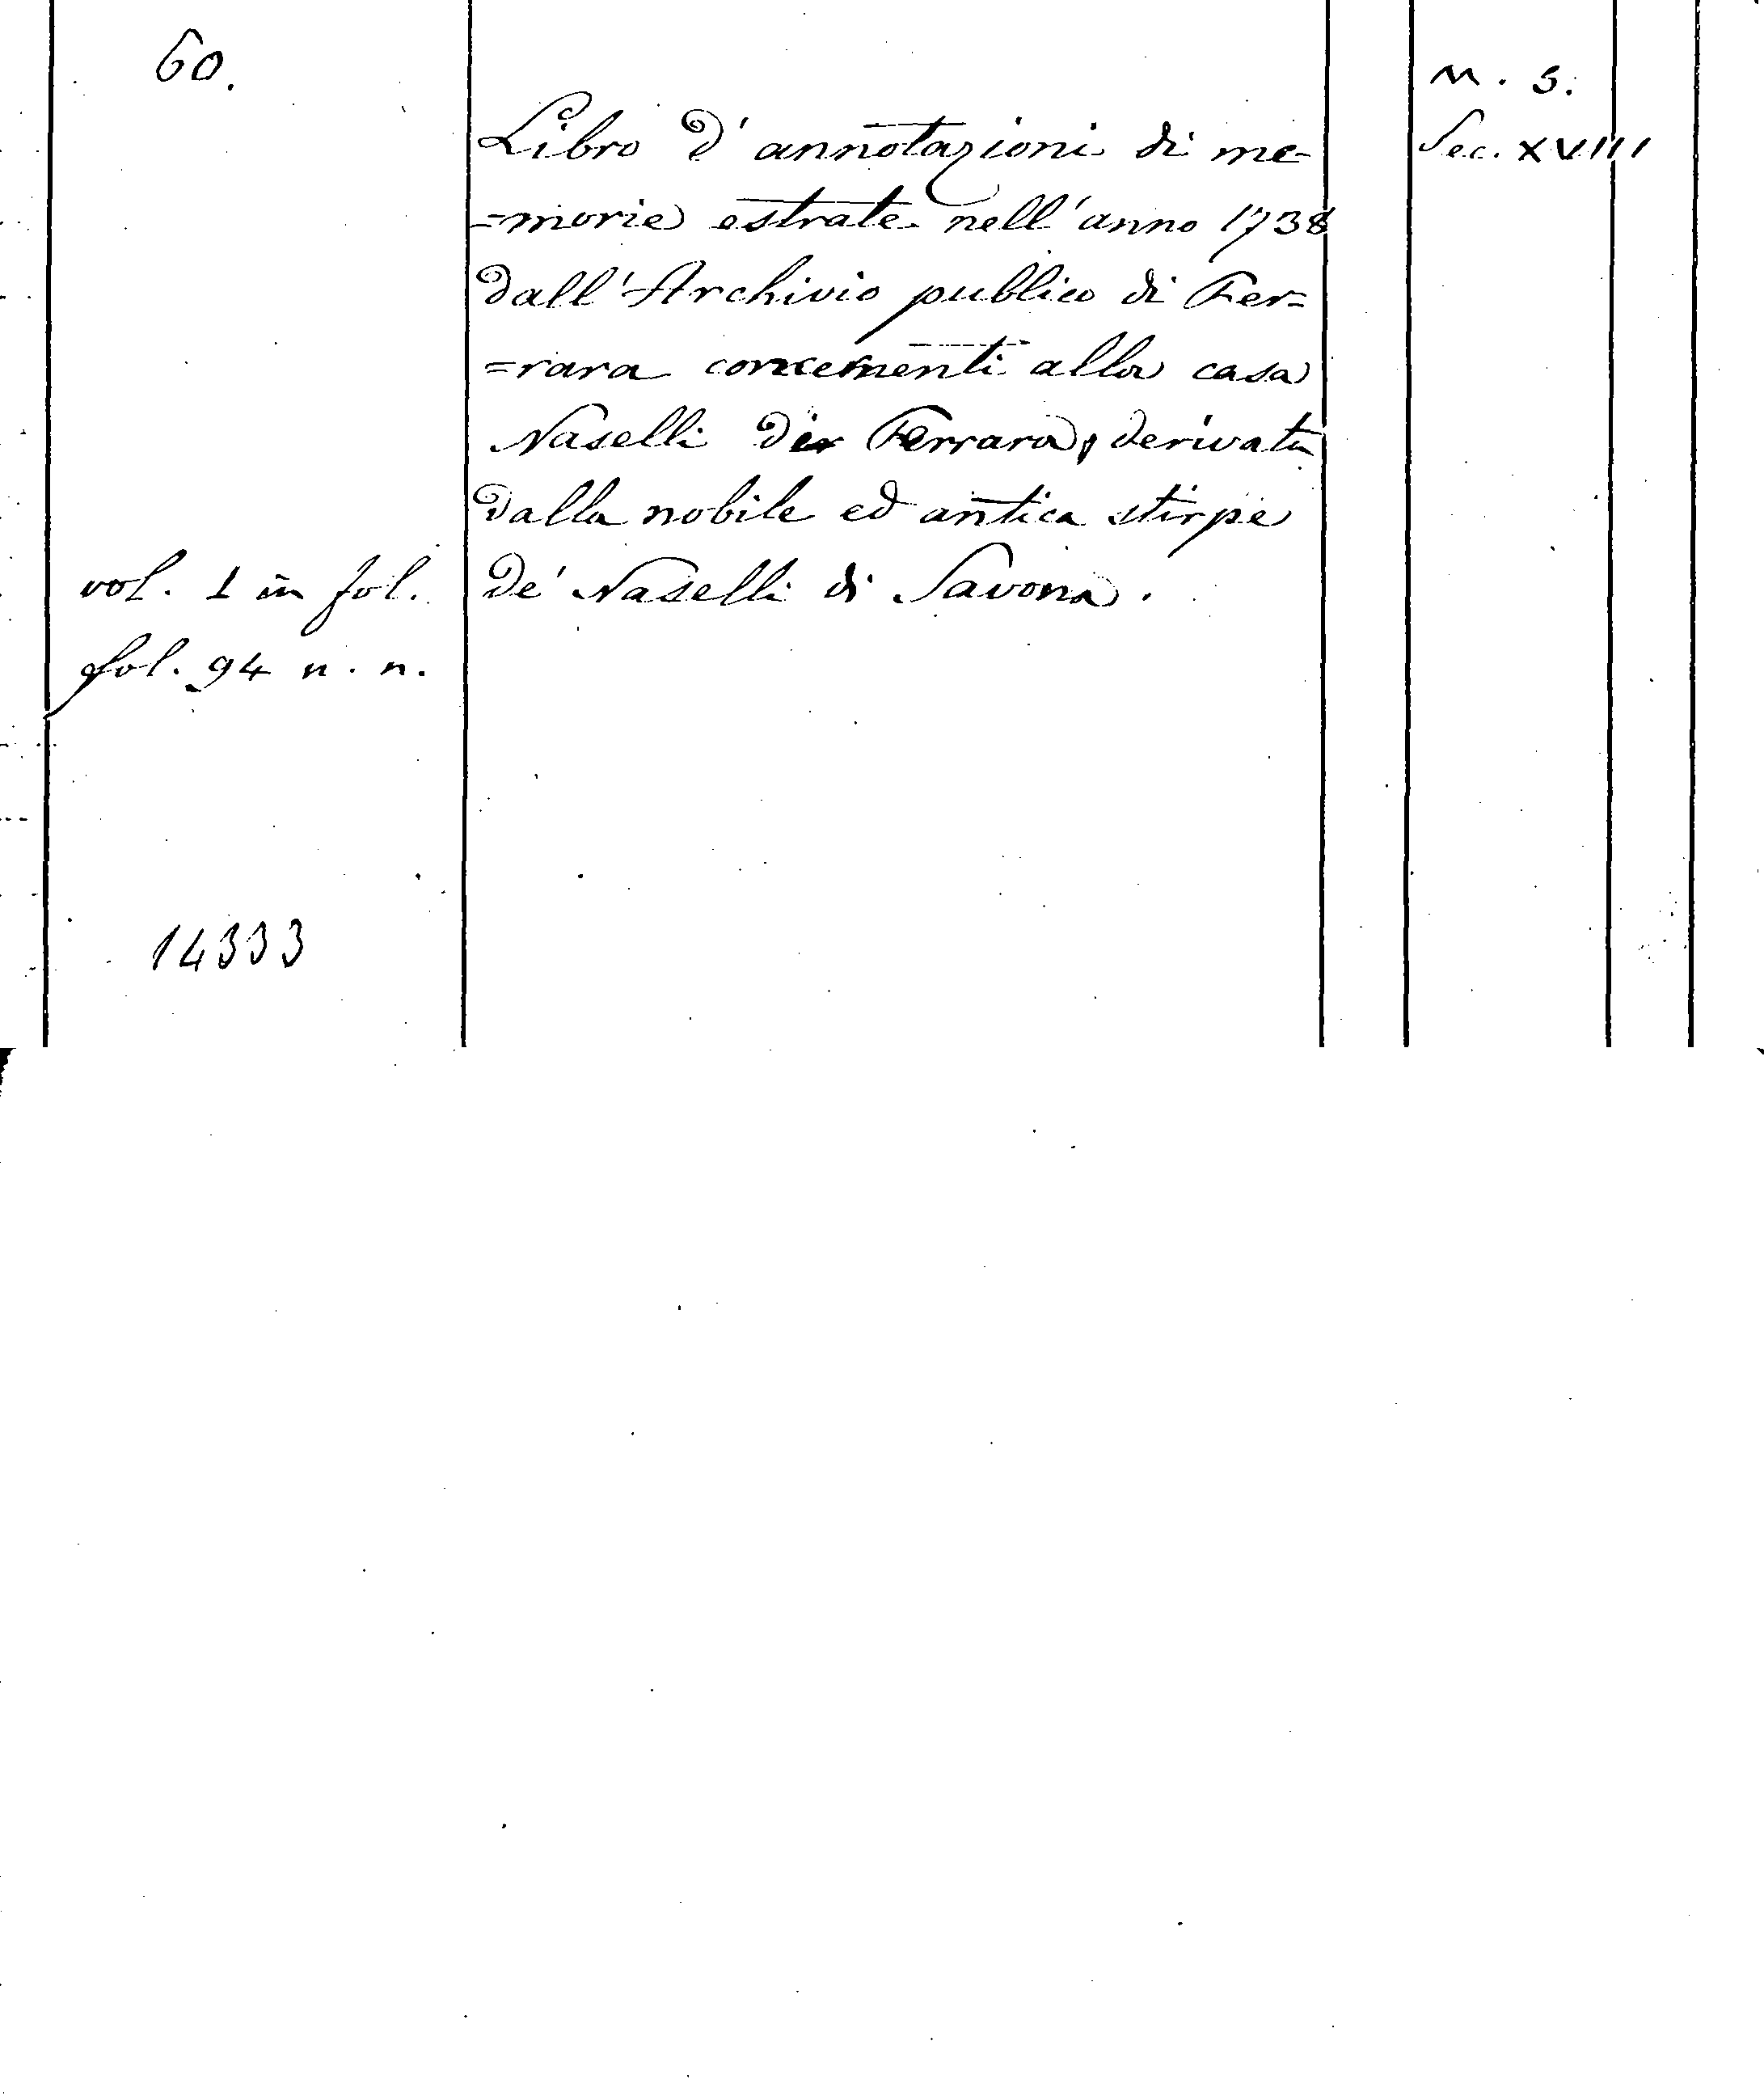 60.
m. s.
Sec. XVIII
Libro d'annotazioni di me-
=morie estrate nell'anno 1738
dall'Archivio publico di Fer=
=rara concernenti alla casa
Naselli di Ferrara, derivata
dalla nobile ed antica stirpe
de' Naselli di Savona.
vol. 1 in fol.
fol. 94 n. n.
14333